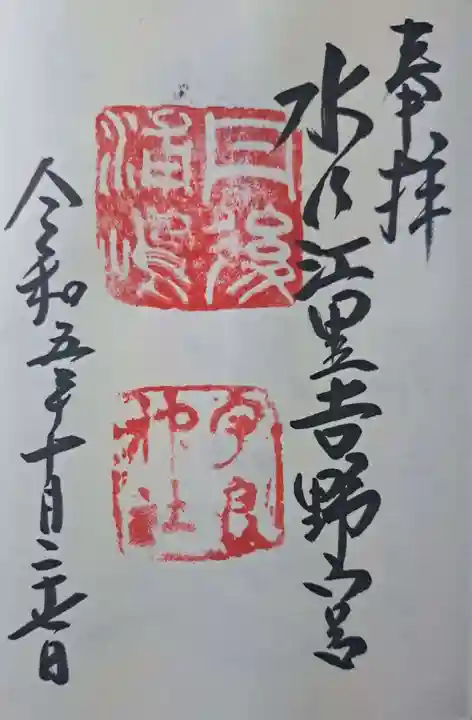 奉拝
水乃江里吉野宮
丹後
浦嶼
宇良
神社
令和五年十月二十七日